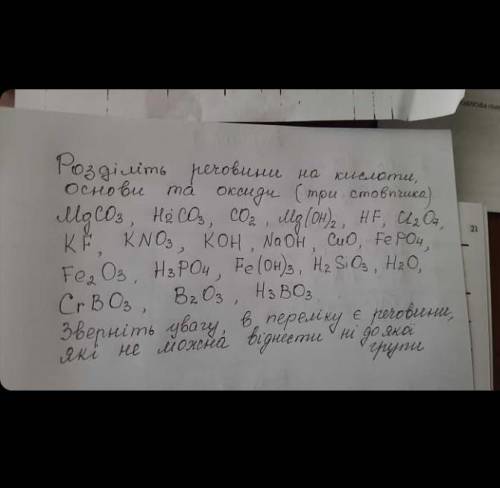 Розділіть речовини на кислоти,
основи та оксиди (три стовпчика)
MgCO3, H2CO3, CO2, Mg(OH)2, HF, Cl2O7,
KF, KNO3, KOH, NaOH, CuO, FePO4,
Fe2O3, H3PO4, Fe(OH)3, H2SiO3, H2O,
CrBO3, B2O3, H3BO3
Зверніть увагу, в переліку є речовини,
які не можна віднести ні до якої
групи
21